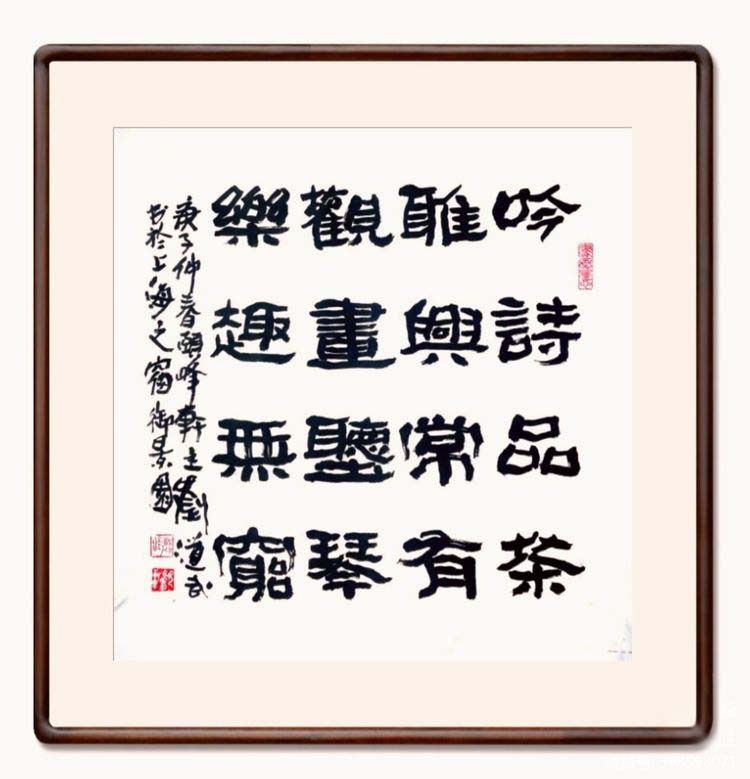 吟詩品茶
雅興常有
觀畫聽琴
樂趣無窮
庚子仲春頤峰軒主劉道武
书於上海之窗御景園